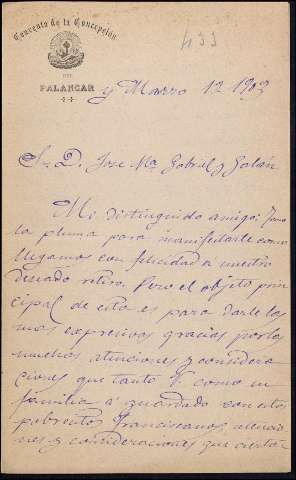 Convento de la Concepción
DEL
PALANCAR
433
y Marzo 12 1903
Sr. D. José Mª Gabriel y Galán
Mi distinguido amigo: Tomo
la pluma para manifestarle como
llegamos con felicidad a nuestro
deseado retiro. Pero el objeto prin
cipal de esta es para darle las
mas expresivas gracias por las
muchas atenciones y considera
ciones que tanto V. como su
familia á guardado con estos
pobrecitos Franciscanos, atencio
nes y consideraciones que ciertam